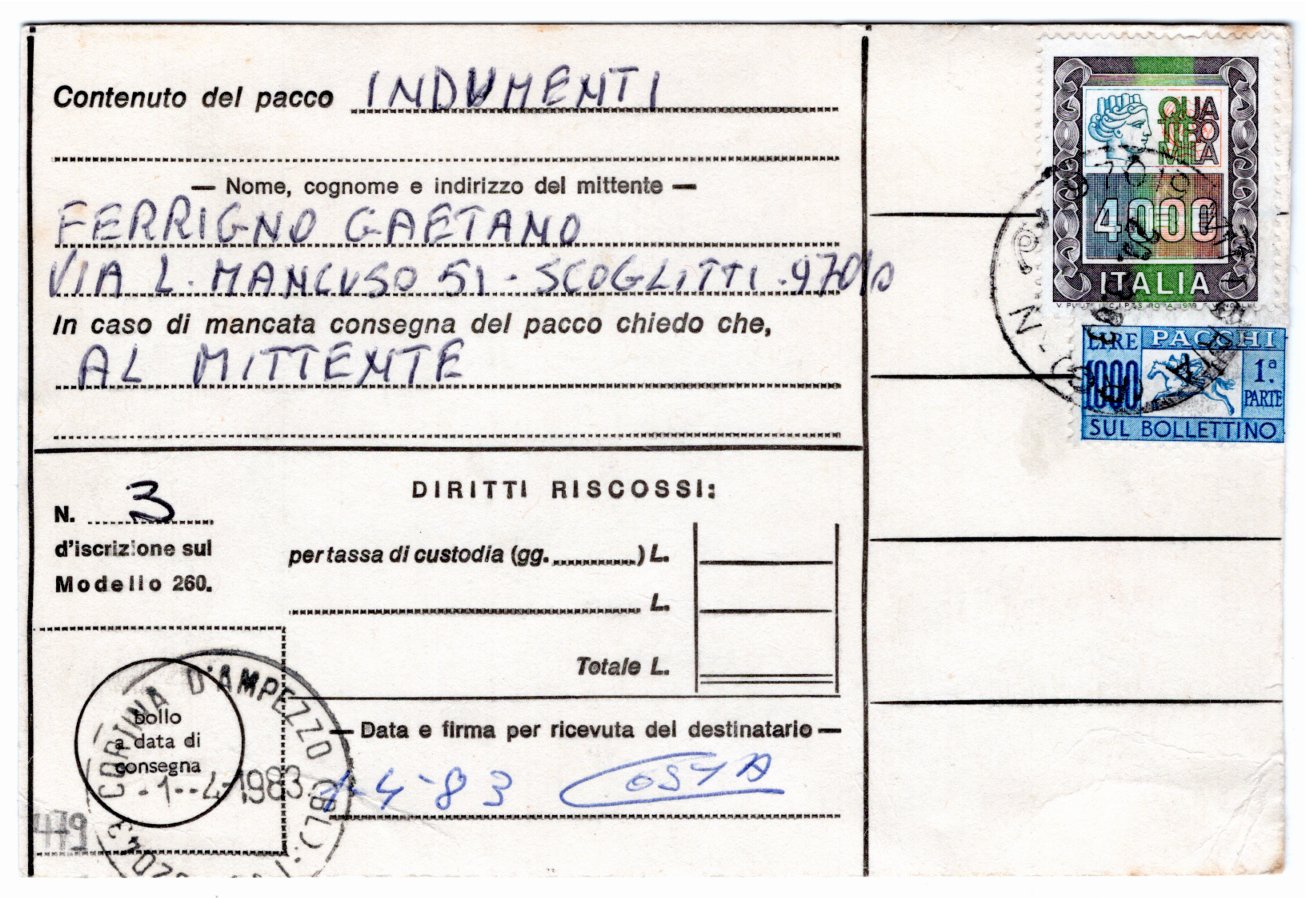 Contenuto del pacco INDUMENTI
— Nome, cognome e indirizzo del mittente —
FERRIGNO GAETANO
VIA L. MANCUSO 51 - SCOGLITTI - 97010
In caso di mancata consegna del pacco chiedo che,
AL MITTENTE
N. 3
d'iscrizione sul
Modello 260.
DIRITTI RISCOSSI:
per tassa di custodia (gg. ) L.
L.
Totale L.
bollo
a data di
consegna
CORTINA D'AMPEZZO (BL)
-1.-4-1983
32043
479
— Data e firma per ricevuta del destinatario —
1-4-83 COSTA
QUA
TTRO
MILA
4000
ITALIA
LIRE PACCHI
1000 1ª PARTE
SUL BOLLETTINO